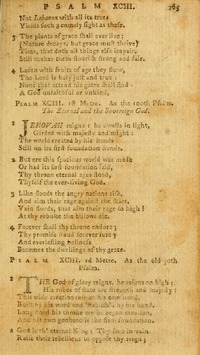 PSALM XCIII. 265
Not Lebanon with all its trees
Yields such a comely sight as these.
3 The plants of grace shall ever live;
(Nature decays, but grace must thrive)
Time, that doth all things else impair,
Still makes them flourish strong and fair.
4 Laden with fruits of age they shew,
The Lord is holy, just and true;
None that attend his gates shall find
A God unfaithful or unkind.
PSALM XCIII. 1st Metre. As the 100th Psalm.
The Eternal and the Sovereign God.
1 JEHOVAH reigns: he dwells in light,
Girded with majesty and might:
The world created by his hands
Still on its first foundation stands.
2 But ere this spacious world was made
Or had its first foundation laid,
Thy throne eternal ages stood,
Thyself the ever-living God.
3 Like floods the angry nations rise,
And aim their rage against the skies;
Vain floods, that aim their rage so high!
At thy rebuke the billows die.
4 For ever shall thy throne endure;
Thy promise stands for ever sure;
And everlasting holiness
Becomes the dwellings of thy grace.
PSALM XCIII. 1d Metre. As the old 50th
Psalm.
1 THE God of glory reigns, he reigns on high;
His robes of state are strength and majesty:
This wide creation rose at his command,
Built by his word and 'stablish'd by his hand:
Long stood his throne ere he began creation,
And his own godhead is the firm foundation.
2 God is th' eternal King: Thy foes in vain
Raise their rebellions to oppose thy reign: